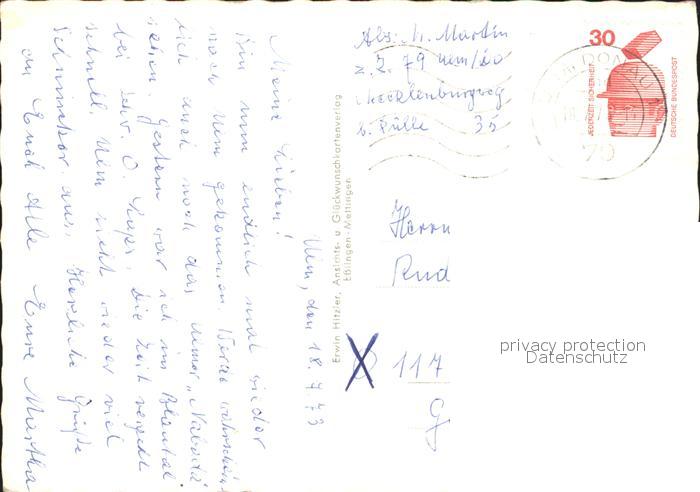 Ulm, den 18.7.73
Meine Lieben!
Bin nun endlich mal wieder
nach Ulm gekommen. Werde wahrschein
lich auch noch das Ulmer „Nabada"
sehen. Gestern war ich im Blautal
bei Schr. O. Die Zeit vergeht
schnell. Ulm sieht wieder viel
schmucker aus. Herzliche Grüße
an Euch Alle Eure Martha
Abs. M. Martin
z. Z. 79 Ulm/Do
Mecklenburgweg
b. Fülle 35
Herrn
Rud
117
G
30
JEDERZEIT SICHERHEIT
DEUTSCHE BUNDESPOST
DONAU
79
Erwin Hitzler, Ansichts- u. Glückwunschkartenverlag
Eßlingen-Mettingen
privacy protection
Datenschutz